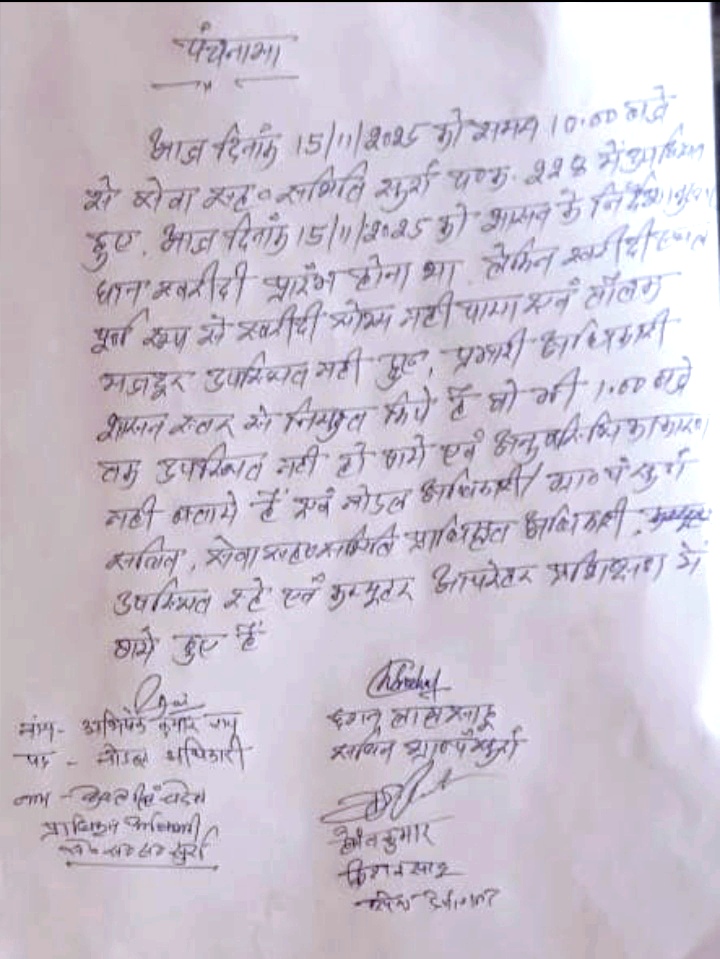 पंचनामा
आज दिनांक 15/11/2025 को समय 10.00 बजे
से सेवा सह० समिति खुर्रा पं०क्र. 228 में उपस्थित
हुए. आज दिनांक 15/11/2025 को शासन के निर्देशानुसार
धान खरीदी प्रारंभ होना था. लेकिन खरीदी स्थल
पूर्ण रूप से खरीदी योग्य नही पाया एवं
मजदूर उपस्थित नही हुए, प्रभारी अधिकारी
शासन स्तर से नियुक्त किये हैं वो भी 1.00 बजे
तक उपस्थित नही हो पाये एवं अनुपस्थिति का कारण
नही बताये हैं एवं नोडल अधिकारी/ ग्रा०पं खुर्रा
सचिव, सेवा सह० समिति प्राधिकृत अधिकारी.
उपस्थित रहे एवं कम्प्यूटर आपरेटर प्रशिक्षण में
गये हुए हैं
नाम- अभिषेक कुमार राय
पद - नोडल अधिकारी
नाम -
प्राधिकृत अधिकारी
खुर्रा
छगन लाल साहू
सचिव ग्रा०पं खुर्रा
कुमार
साहू